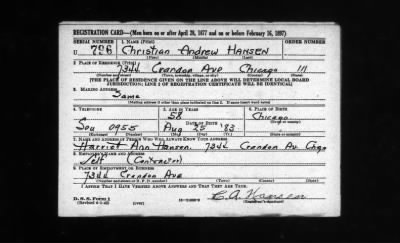 REGISTRATION CARD—(Men born on or after April 28, 1877 and on or before February 16, 1897)
SERIAL NUMBER 1. NAME (Print) ORDER NUMBER
U 726 Christian Andrew HANSEN
(First) (Middle) (Last)
2. PLACE OF RESIDENCE (Print)
7344 Crandon Ave Chicago Ill
(Number and street) (Town, township, village, or city) (County) (State)
[THE PLACE OF RESIDENCE GIVEN ON THE LINE ABOVE WILL DETERMINE LOCAL BOARD
JURISDICTION; LINE 2 OF REGISTRATION CERTIFICATE WILL BE IDENTICAL]
3. MAILING ADDRESS
Same
[Mailing address if other than place indicated on line 2. If same insert word same]
4. TELEPHONE 5. AGE IN YEARS 6. PLACE OF BIRTH
58 Chicago
DATE OF BIRTH
Sou 0955 Aug 25 '83
(Mo.) (Day) (Yr.)
7. NAME AND ADDRESS OF PERSON WHO WILL ALWAYS KNOW YOUR ADDRESS
Harriet Ann Hansen. 7344 Crandon Av. Chgo
8. EMPLOYER'S NAME AND ADDRESS
Self (Contractor)
7344 Crandon Ave
I AFFIRM THAT I HAVE VERIFIED ABOVE ANSWERS AND THAT THEY ARE TRUE.
D. S. S. Form 1
C. A. Hansen
(Registrant's signature)